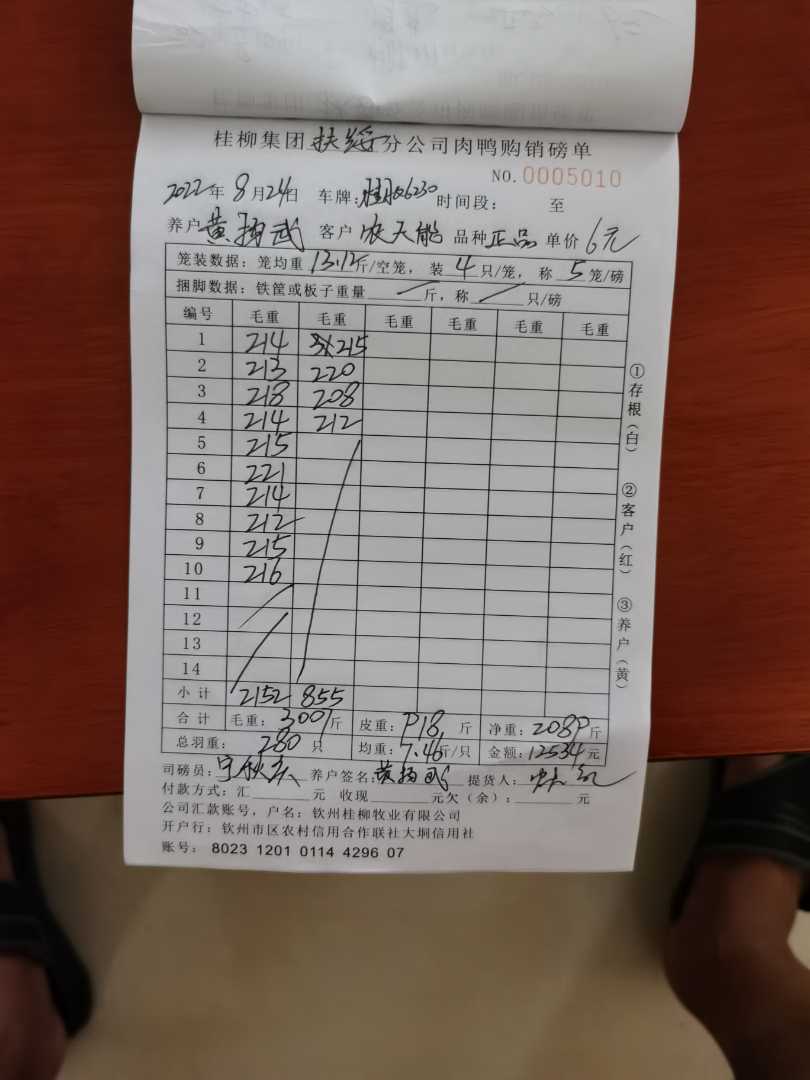 桂柳集团扶绥分公司肉鸭购销磅单
NO.0005010
2022年8月24日 车牌: 6230 时间段: 至
养户黄扬武 客户农天能 品种正品 单价6元
笼装数据:笼均重13.12斤/空笼,装4只/笼,称5笼/磅
捆脚数据:铁筐或板子重量/斤,称/只/磅
编号 毛重 毛重 毛重 毛重 毛重 毛重
1 214 215
2 213 220
3 218 208
4 214 212
5 215
6 221
7 214
8 212
9 215
10 216
11
12
13
14
小计 2152 855
合计 毛重:3007斤 皮重:918斤 净重:2089斤
总羽重:280只 均重:7.46斤/只 金额:12534元
司磅员: 养户签名:黄扬武 提货人:
付款方式:汇 元 收现 元欠(余): 元
公司汇款账号,户名:钦州桂柳牧业有限公司
开户行:钦州市区农村信用合作联社大垌信用社
账号: 8023 1201 0114 4296 07
①存根(白)
②客户(红)
③养户(黄)